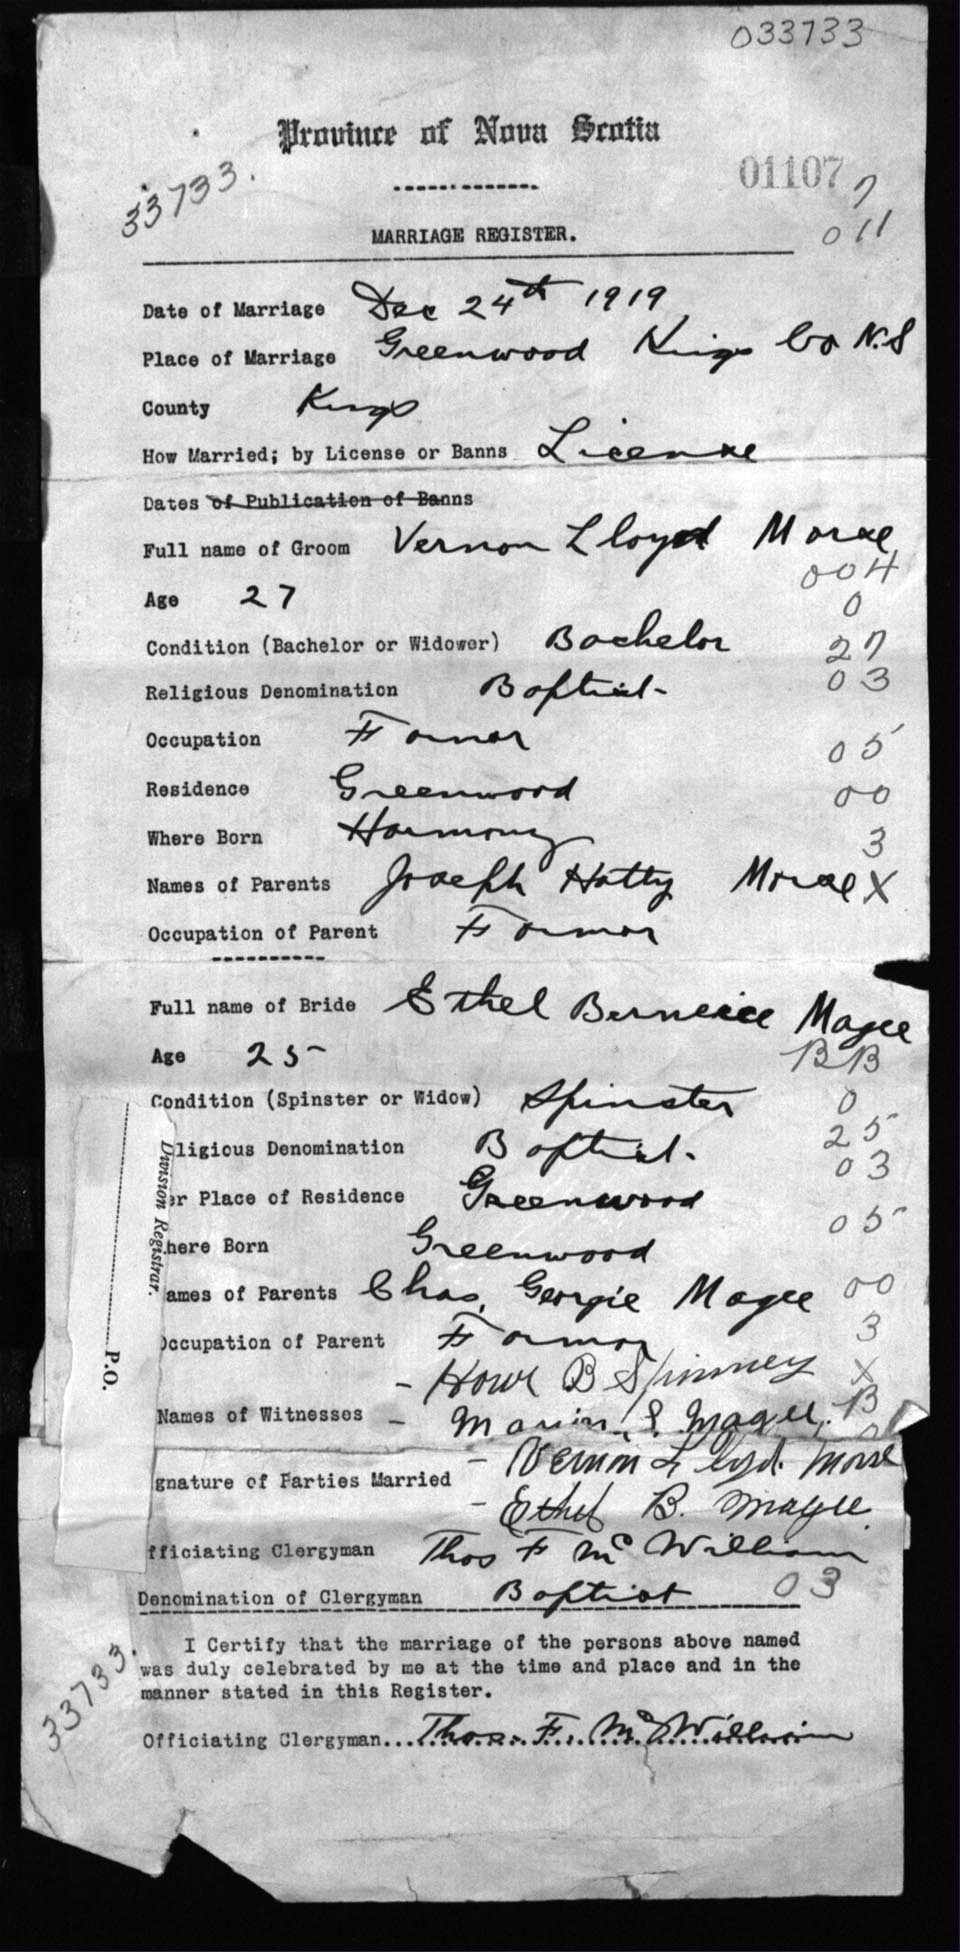 033733
Province of Nova Scotia
33733.
01107
7
011
MARRIAGE REGISTER.
Date of Marriage Dec 24th 1919
Place of Marriage Greenwood Kings Co N.S
County Kings
How Married; by License or Banns License
Dates of Publication of Banns
Full name of Groom Vernon Lloyd Morse
004
Age 27
0
Condition (Bachelor or Widower) Bachelor 27
Religious Denomination Baptist- 03
Occupation Farmer 05
Residence Greenwood 00
Where Born Harmony 3
Names of Parents Joseph Hatty Morse X
Occupation of Parent Farmer
Full name of Bride Ethel Berneice Magee
Age 25 BB
Condition (Spinster or Widow) Spinster 0
25
ligious Denomination Baptist. 03
er Place of Residence Greenwood
05
here Born Greenwood
ames of Parents Chas, Georgie Magee 00
Occupation of Parent Farmer 3
- B Spinney X
Names of Witnesses - Marion S. Magee. B
- Vernon Lloyd. Morse
gnature of Parties Married
- Ethel B. Magee
fficiating Clergyman Thos F McWilliam
Denomination of Clergyman Baptist 03
I Certify that the marriage of the persons above named
was duly celebrated by me at the time and place and in the
manner stated in this Register.
Officiating Clergyman...Thos. F. McWilliam
33733.
Division Registrar.
P.O.